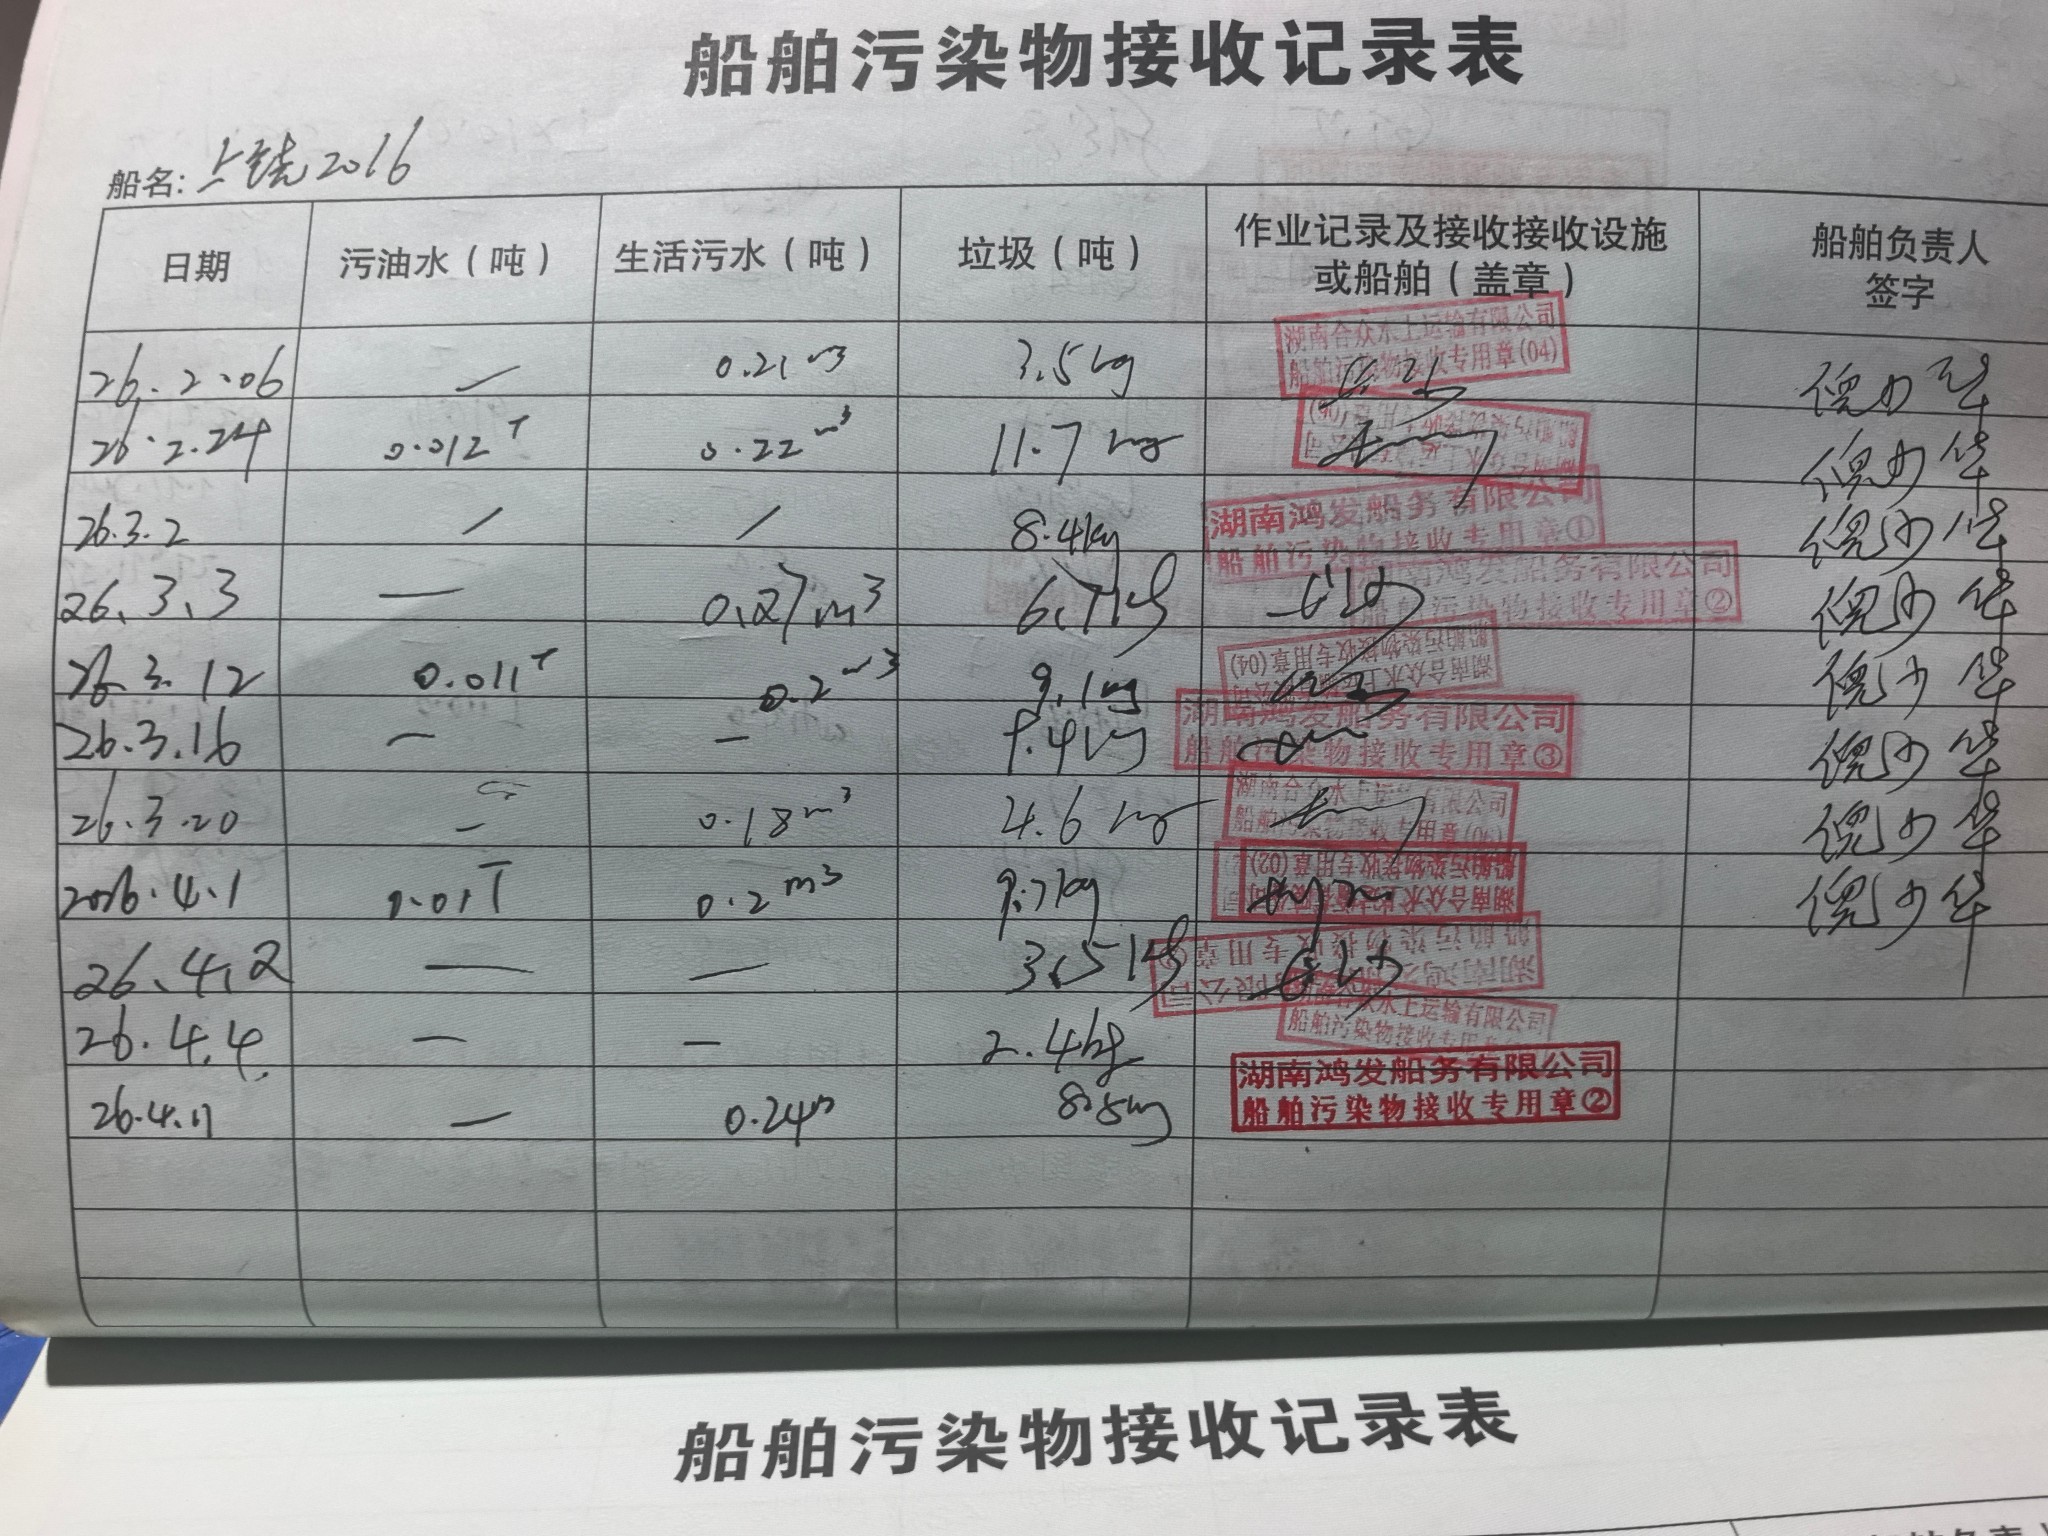 船舶污染物接收记录表
船名: 上饶2016
日期 污油水（吨） 生活污水（吨） 垃圾（吨） 作业记录及接收接收设施或船舶（盖章） 船舶负责人签字
26.2.06 — 0.21m3 3.5kg 湖南合众水上运输有限公司 船舶污染物接收专用章(04) 倪少华
26.2.24 0.012T 0.22m3 11.7kg 倪少华
26.3.2 / / 8.4kg 湖南鸿发船务有限公司 船舶污染物接收专用章① 倪少华
26.3.3 — 0.27m3 6.7kg 湖南鸿发船务有限公司 船舶污染物接收专用章② 倪少华
26.3.12 0.011T 0.2m3 9.1kg 湖南合众水上运输有限公司 船舶污染物接收专用章(04) 倪少华
26.3.16 — — 9.4kg 湖南鸿发船务有限公司 船舶污染物接收专用章③ 倪少华
26.3.20 — 0.18m3 4.6kg 湖南合众水上运输有限公司 船舶污染物接收专用章 倪少华
2026.4.1 0.01T 0.2m3 9.7kg 湖南合众水上运输有限公司 船舶污染物接收专用章(02) 倪少华
26.4.2 — — 3.5kg
26.4.4 — — 2.4kg 水上运输有限公司 船舶污染物接收专用章
26.4.11 — 0.24m 8.5kg 湖南鸿发船务有限公司 船舶污染物接收专用章②
船舶污染物接收记录表